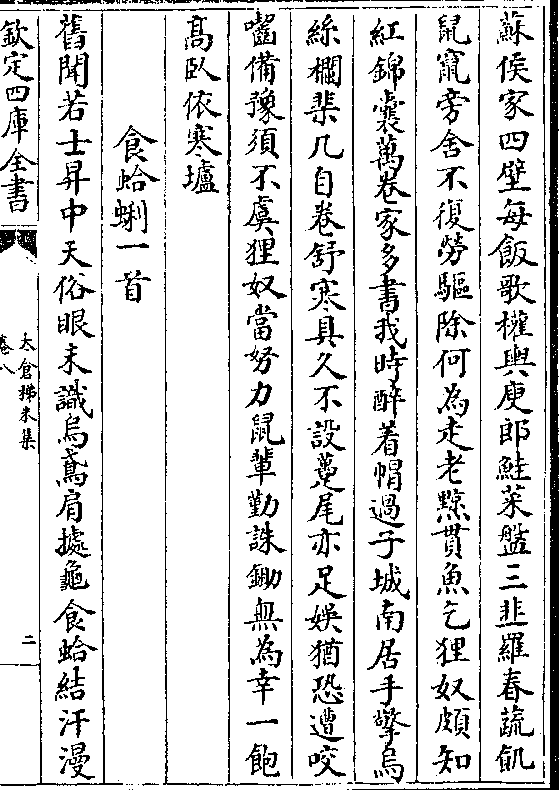 蘇侯家四壁每飯歌權輿庾郎鮭菜盤三韭羅春蔬飢
鼠竄旁舍不復勞驅除何為走老黥貫魚乞狸奴頗知
紅錦囊萬卷家多書我時醉着帽過子城南居手擎烏
絲欄棐几自卷舒寒具久不設麈尾亦足娛猶恐遭咬
囓備豫須不虞狸奴當努力鼠輩勤誅鋤無為幸一飽
高臥依寒壚
食蛤蜊一首
舊聞若士昇中天俗眼未識烏鳶肩據龜食蛤結汗漫
欽定四庫全書
太倉稊米集
卷八
二